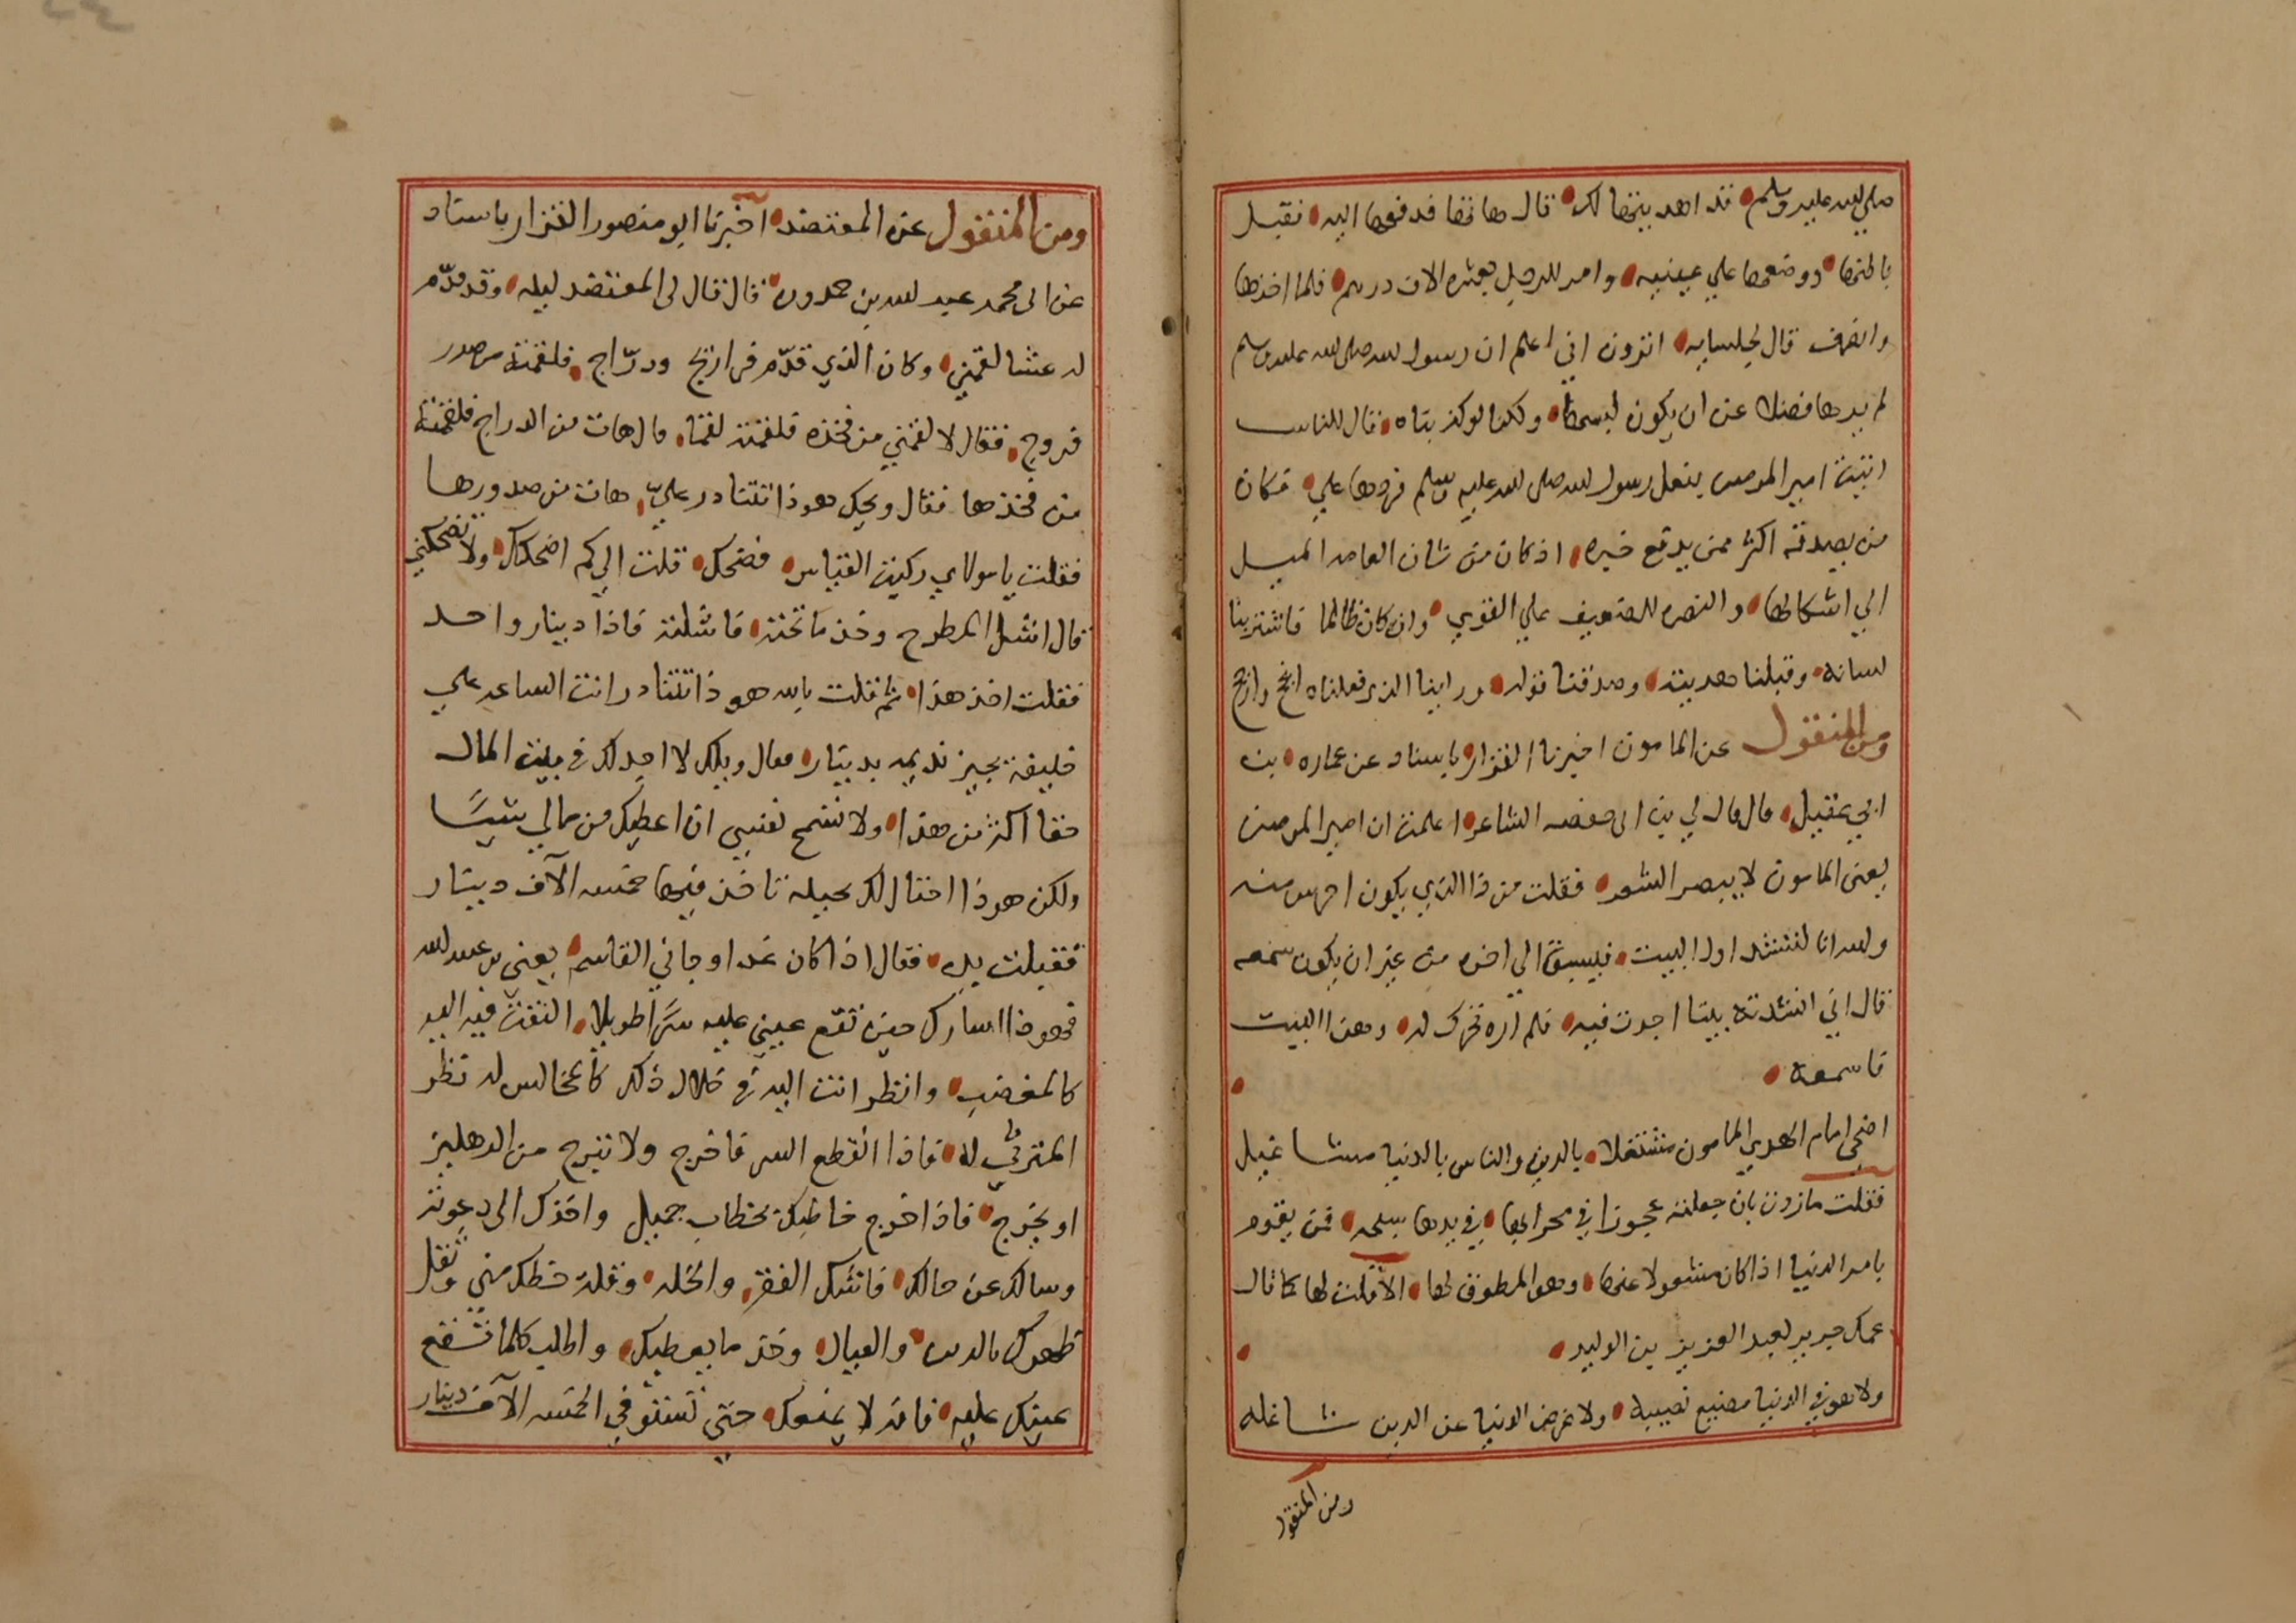 صلي الله عليه وسلم قد اهديتها لك قال هاتها فدفعها اليه فقبل
باطنها ووضعها علي عينيه وامر للرجل بعشره الاف درهم فلما اخذها
وانصرف قال لجلسايه اترون اني اعلم ان رسول الله صلى الله عليه وسلم
لم يرها فضلا عن ان يكون لبسها ولكنا لو كذبناه قال للناس
اتيت امير المومنين بنعل رسول الله صلى الله عليه وسلم فردها علي فكان
من يصدقه اكثر ممن يدفع خبره اذ كان من شان العامه الميل
الي اشكالها والنصره للضعيف علي القوي وان كان ظالما فاشترينا
لسانه وقبلنا هديته وصدقنا قوله وراينا الذي فعلناه انجح وارجح
ومن المنقول عن المامون اخبرنا القزار باسناد عن عماره بن
ابي عقيل قال قال لي بن ابي حفصه الشاعر اعلمت ان امير المومنين
يعني المامون لا يبصر الشعر فقلت من ذا الذي يكون افرس منه
والله انا لننشد اول البيت فيسبق الي اخره من غير ان يكون سمعه
قال اني انشدته بيتا اجدت فيه فلم اره تحرك له وهذا البيت
فاسمعه
اضحي امام الهدي المامون مشتغلا بالدين والناس بالدنيا مشاغيل
فقلت مازدت بان جعلته عجوزا في محرابها في يدها سبحه فمن يقوم
بامر الدنيا اذا كان مشغولا عنها وهو المطوق لها الا قلت لها كما قال
عمك جرير لعبد العزيز بن الوليد
ولا هو في الدنيا مضيع نصيبه ولا عرض الدنيا عن الدين شاغله
ومن المنقول
ومن المنقول عن المعتضد اخبرنا ابو منصور القزار باسناد
عن ابى محمد عبد الله بن حمدون قال قال لى المعتضد ليله وقد قدّم
له عشا لقمني وكان الذي قدّم فراريج ودرّاج فلقمته من صدر
فروج فقال لا لقمني من فخذه فلقمته لقما قال هات من الدراج فلقمته
من فخذها فقال ويحك هو ذا تتنادر عليّ هات من صدورها
فقلت يا مولاي ركبت القياس فضحك فقلت الي كم اضحكك ولا تضحكني
قال انشل المطرح وخذ ما تحته فاشلته فاذا دينار واحد
فقلت اخذ هذا ثم قلت بالله هو ذا تتنادر انت الساعه علي
خليفة يجيز نديمه بدينار فقال ويلك لا اجد لك في بيت المال
حقا اكثر من هذا ولا تسمح نفسي ان اعطيك من مالي شيًا
ولكن هو ذا احتال لك بحيله تاخذ فيها خمسه الآف دينار
فقبلت يده فقال اذا كان غدا وجاني القاسم يعني بن عبيد الله
فهو ذا اسارك حين تقع عيني عليه سرًا طويلا التفت فيه اليه
كالمغضب وانظر انت اليه في خلال ذلك كالمخالس له نظر
المترثي له فاذا انقطع السر فاخرج ولا تبرح من الدهليز
او يخرج فاذا اخرج خاطبك بخطاب جميل واخذك الى دعوته
وسالك عن حالك فاشك الفقر والخله وقلة حظك مني وثقل
ظهرك بالدين والعيال وخذ ما يعطيك واطلب كلما تقع
عينك عليه فانه لا يمنعك حتي تستوفي الخمسه الآف دينار